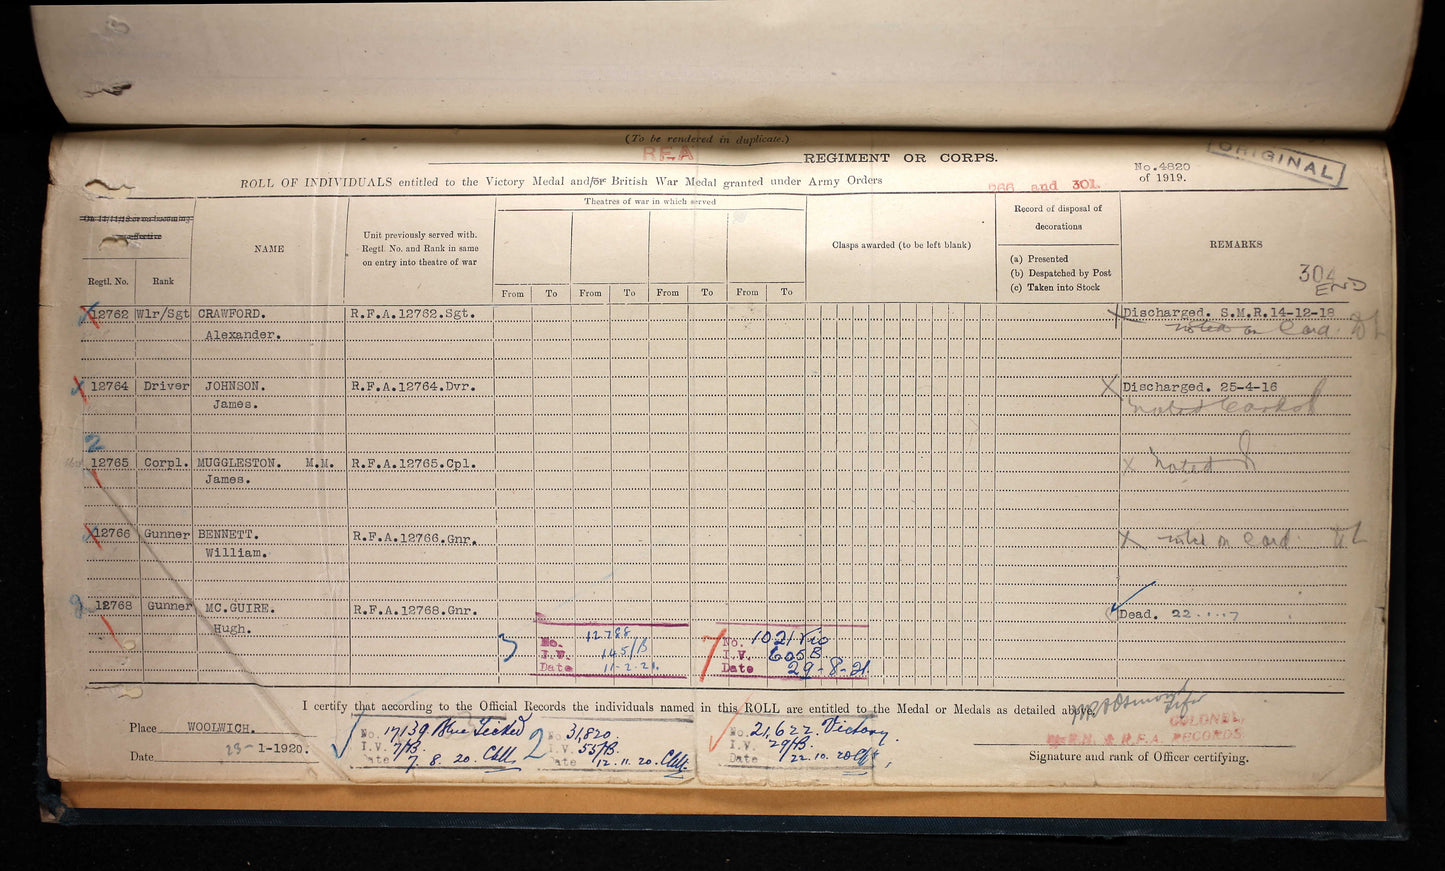 (To be rendered in duplicate.)
RFA REGIMENT OR CORPS.
No. 4820
of 1919.
ORIGINAL
ROLL OF INDIVIDUALS entitled to the Victory Medal and/or British War Medal granted under Army Orders 266 and 301.
Theatres of war in which served
Regtl. No. Rank
NAME
Unit previously served with.
Regtl. No. and Rank in same
on entry into theatre of war
From To From To From To From To
Clasps awarded (to be left blank)
Record of disposal of
decorations
(a) Presented
(b) Despatched by Post
(c) Taken into Stock
REMARKS
304
END
12762 Wlr/Sgt CRAWFORD. R.F.A.12762.Sgt. Discharged. S.M.R.14-12-18
Alexander. noted on Card.
12764 Driver JOHNSON. R.F.A.12764.Dvr. Discharged. 25-4-16
James. Noted
2
12765 Corpl. MUGGLESTON. M.M. R.F.A.12765.Cpl. Noted
James.
12766 Gunner BENNETT. R.F.A.12766.Gnr. noted on Card
William.
12768 Gunner MC.GUIRE. R.F.A.12768.Gnr. Dead. 22
Hugh.
3
No. 12788
I.V. 145/B
Date 11-2-21.
7
No. 1021 Vic
I.V. 605B
Date 29-8-21
I certify that according to the Official Records the individuals named in this ROLL are entitled to the Medal or Medals as detailed above.
Place WOOLWICH.
Date 23-1-1920.
No. 17139 Blue Ticked
I.V. 7/B.
Date 7.8.20
2
No. 31,820.
I.V. 55/B.
Date 12.11.20.
No. 21,622. Victory.
I.V. 29/B.
Date 22.10.20
COLONEL,
R.F.A. RECORDS
Signature and rank of Officer certifying.